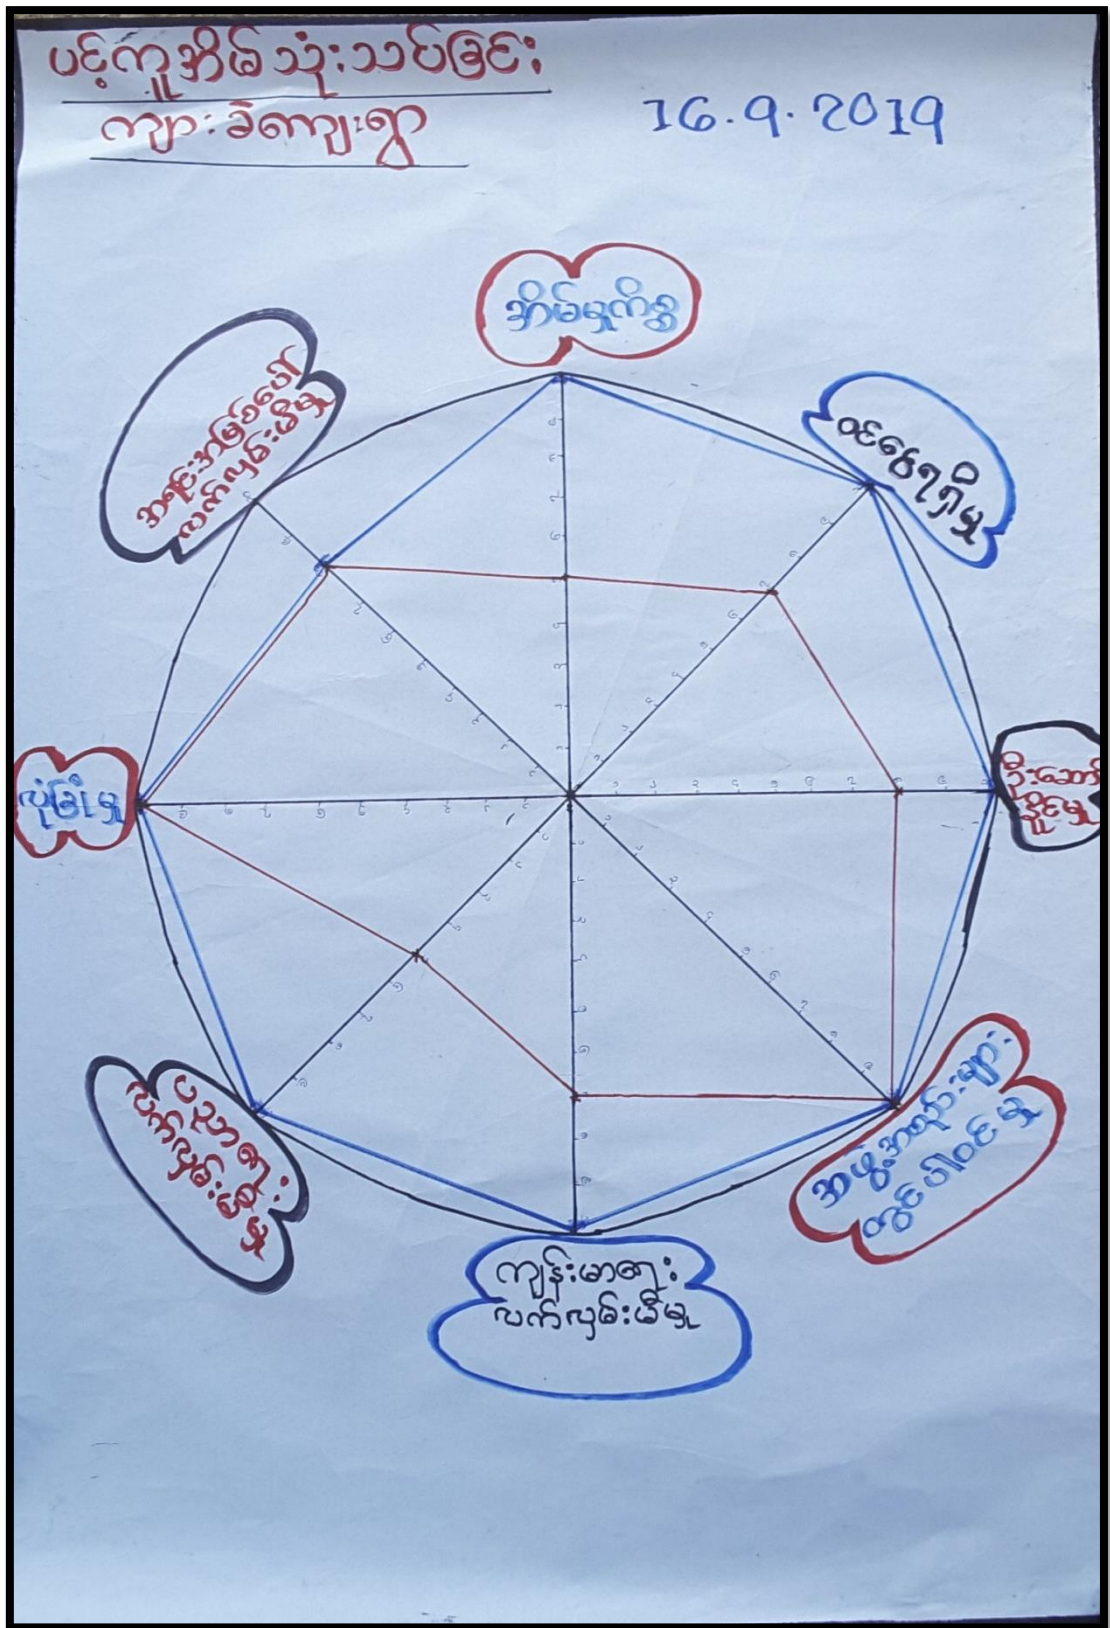 ပင့်ကူအိမ်သုံးသပ်ခြင်း
ကျားခဲကျေးရွာ
16.9.2019
အိမ်မှုကိစ္စ
ဝင်ငွေရရှိမှု
ဦးဆောင်
နိူင်မှု
အဖွဲ့အစည်းများ
တွင်ပါဝင်မှု
ကျန်းမာရေး
လက်လှမ်းမီမှု
ပညာရေး
လက်လှမ်းမီမှု
လုံခြုံမှု
အရင်းအမြစ်ပေါ်
လက်လှမ်းမီမှု